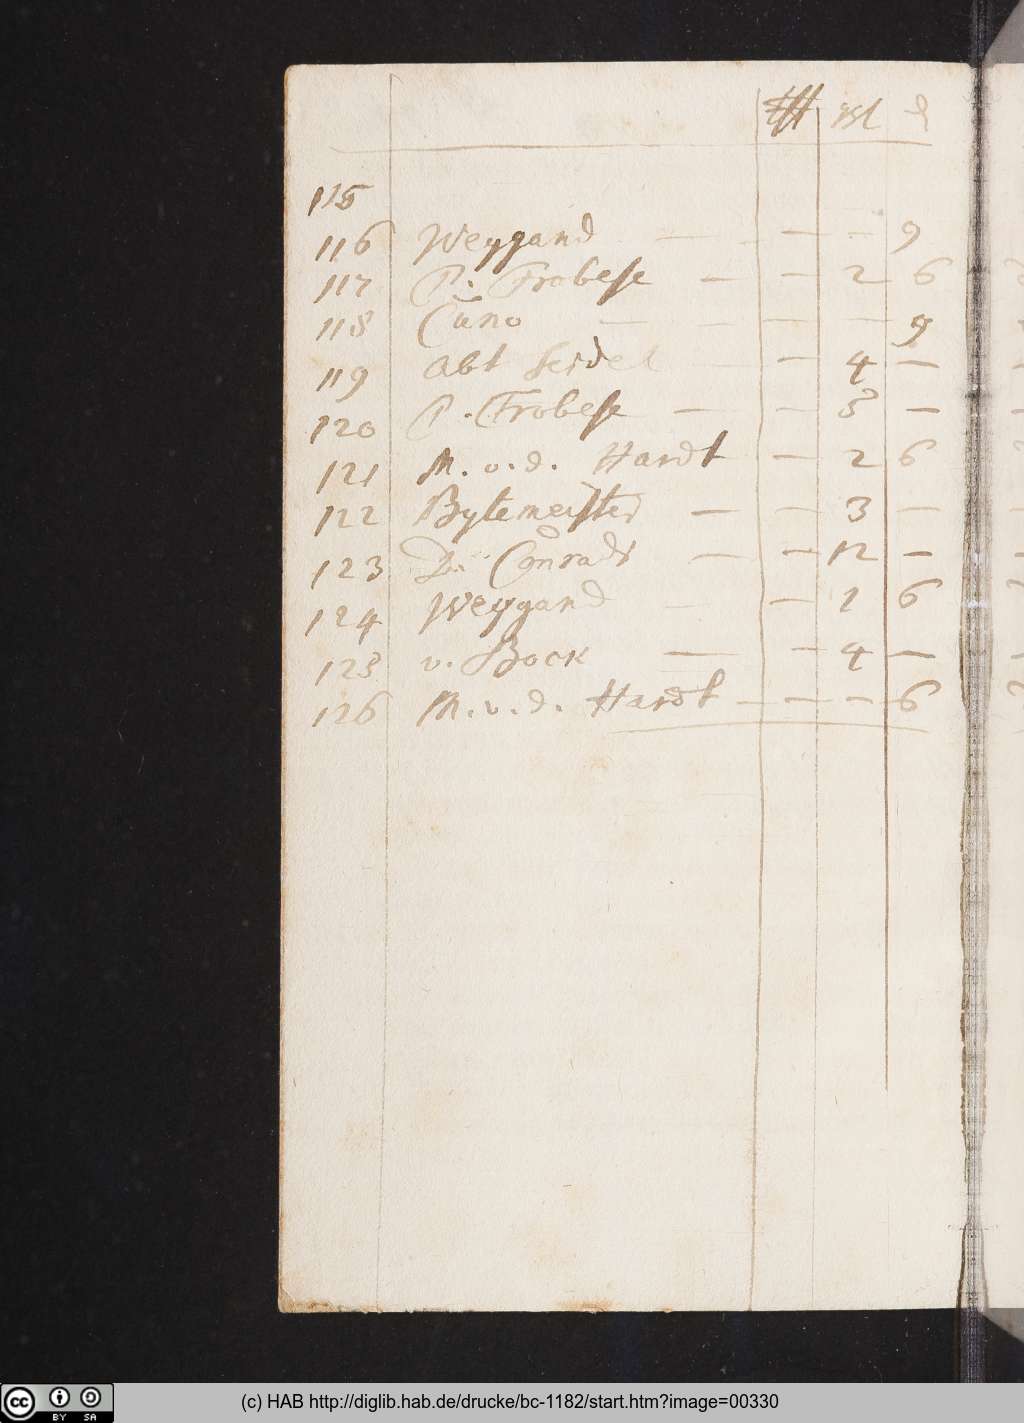 ggl d
115
116 Weygand — — — 9
117 P. Frobese — — 2 6
118 Cuno — — — — 9
119 Abt Seidel — — 4 —
120 P. Frobese — — 3 —
121 M. v. d. Hardt — 2 6
122 Bytemeister — — 3 —
123 D. Conradi — — 12 —
124 Weygand — — 1 6
125 v. Bock — — 4 —
126 M. v. d. Hardt — — — 6
(c) HAB http://diglib.hab.de/drucke/bc-1182/start.htm?image=00330
CC BY SA